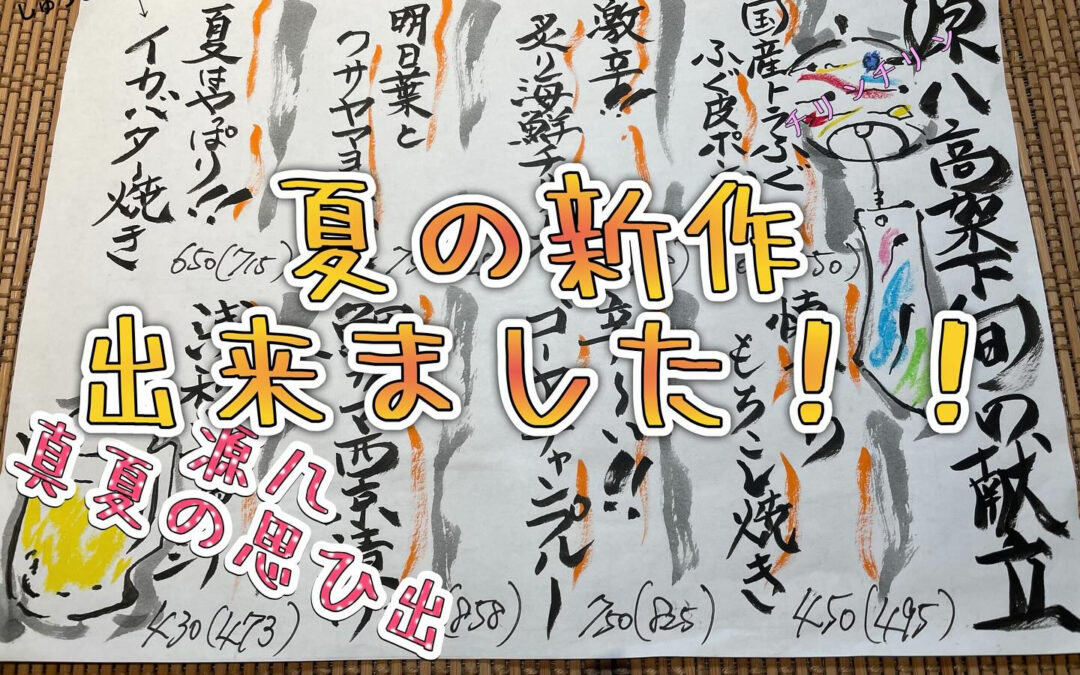 夏の新作
出来ました！！
源八
真夏の思ひ出
源八高架下旬の献立
チリンチリン
国産トラふぐ
ふぐ皮ポン
激辛!!
炙り海鮮チ
明日葉と
クサヤマヨ
夏はやっぱり!!
イカバター焼き
650(715)
もちこし焼き
450(495)
辛〜い!!
ゴーヤチャンプルー
750(825)
西京漬
(858)
430(473)